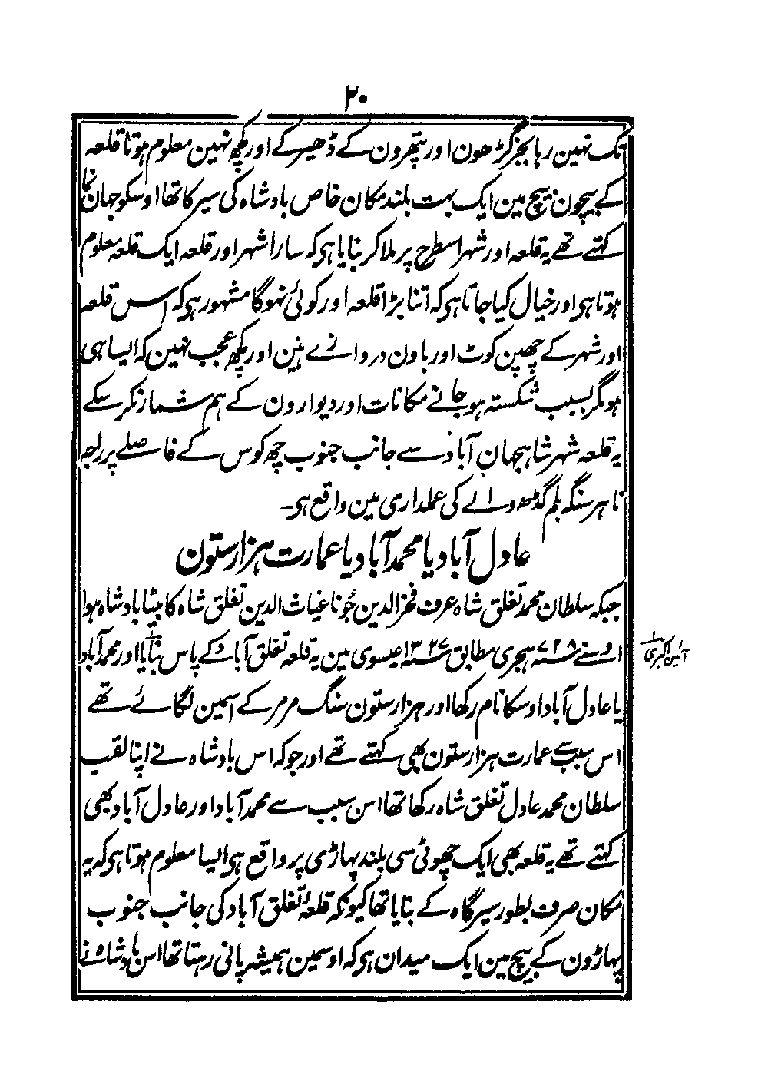 ۲۰
تک نہین رہا بجز گڑھون اور پتھرون کے ڈھیر کے اور کچھ نہین معلوم ہوتا قلعہ
کے بیچون بیچ مین ایک بہت بلند مکان خاص بادشاہ کی سیر کا تھا اوسکو جہان نما
کہتے تھے یہ قلعہ اور شہر اسطح پر ملا کر بنایا ہی کہ سارا شہر اور قلعہ ایک قلعہ معلوم
ہوتا ہی اور خیال کیا جاتا ہی کہ اتنا بڑا قلعہ اور کوئی نہوگا مشہور ہی کہ اس قلعہ
اور شہر کے چھپن کوٹ اور باون دروازے ہین اور کچھ عجب نہین کہ ایسا ہی
ہو مگر بسبب شکستہ ہوجانے مکانات اور دیوارون کے ہم شمار نکر سکے
یہ قلعہ شہر شاہجہان آباد سے جانب جنوب چھ کوس کے فاصلے پر راجہ
ناہر سنگہ بلم گڈھ والے کی عملداری مین واقع ہی۔
عادل آباد یا محمد آباد یا عمارت ہزار ستون
جبکہ سلطان محمد تغلق شاہ عرف فخر الدین جونا غیاث الدین تغلق شاہ کا بیٹا بادشاہ ہوا
اوسنے ۷۲۸ ہجری مطابق ۱۳۲۷ عیسوی مین یہ قلعہ تغلق آباد کے پاس بنایا اور محمد آباد
آئین اکبری
یا عادل آباد اوسکا نام رکھا اور ہزار ستون سنگ مرمر کے اسمین لگائے تھے
اس سبب سے عمارت ہزار ستون بھی کہتے تھے اور جو کہ اس بادشاہ نے اپنا لقب
سلطان محمد عادل تغلق شاہ رکھا تھا اس سبب سے محمد آباد اور عادل آباد بھی
کہتے تھے یہ قلعہ بھی ایک چھوٹی سی بلند پہاڑی پر واقع ہی ایسا معلوم ہوتا ہی کہ یہ
مکان صرف بطور سیرگاہ کے بنایا تھا کیونکہ قلعہ تغلق آباد کی جانب جنوب
پہاڑون کے بیچ مین ایک میدان ہی کہ اوسمین ہمیشہ پانی رہتا تھا اس بادشاہ نے